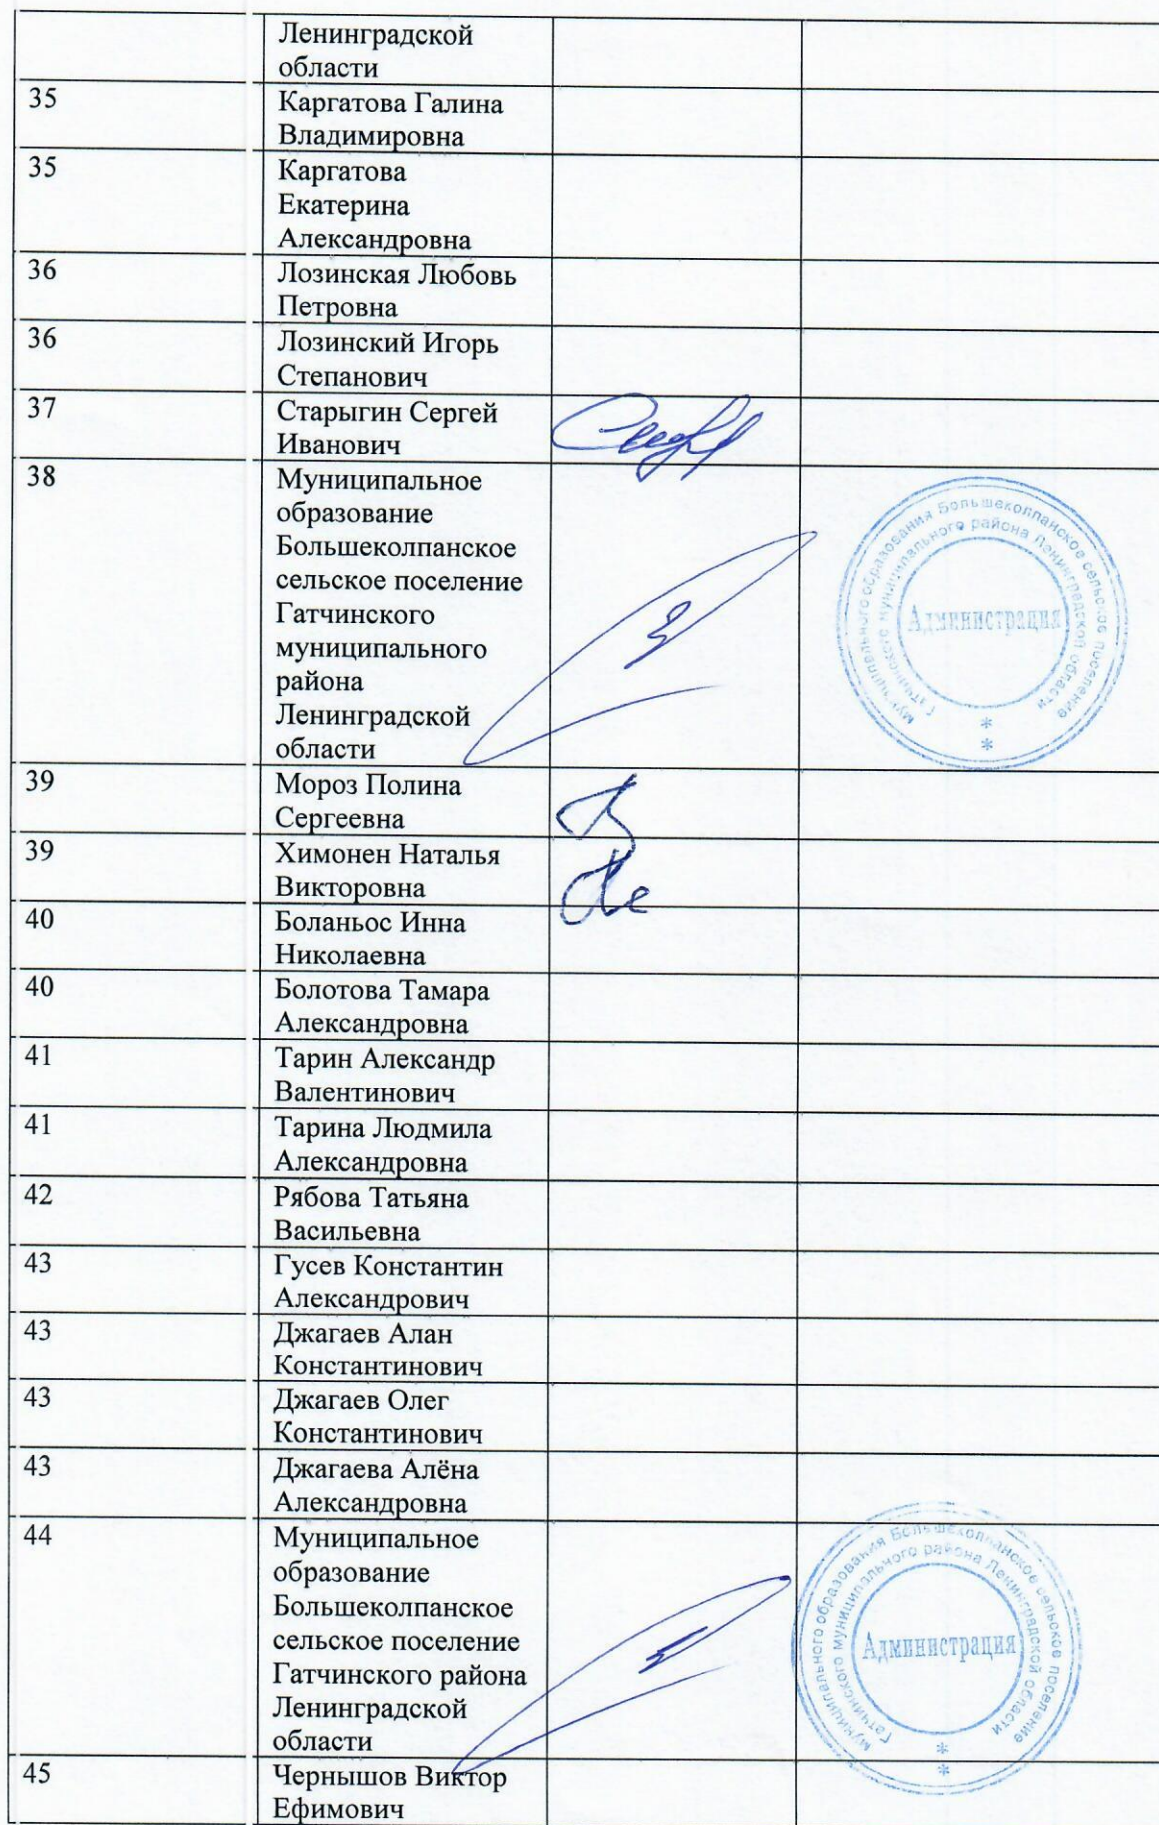 Ленинградской
области
35
Каргатова Галина
Владимировна
35
Каргатова
Екатерина
Александровна
36
Лозинская Любовь
Петровна
36
Лозинский Игорь
Степанович
37
Старыгин Сергей
Иванович
38
Муниципальное
образование
Большеколпанское
сельское поселение
Гатчинского
муниципального
района
Ленинградской
области
муниципального образования Большеколпанское сельское поселение
Гатчинского муниципального района Ленинградской области
Администрация
* *
39
Мороз Полина
Сергеевна
39
Химонен Наталья
Викторовна
40
Боланьос Инна
Николаевна
40
Болотова Тамара
Александровна
41
Тарин Александр
Валентинович
41
Тарина Людмила
Александровна
42
Рябова Татьяна
Васильевна
43
Гусев Константин
Александрович
43
Джагаев Алан
Константинович
43
Джагаев Олег
Константинович
43
Джагаева Алёна
Александровна
44
Муниципальное
образование
Большеколпанское
сельское поселение
Гатчинского района
Ленинградской
области
муниципального образования Большеколпанское сельское поселение
Гатчинского муниципального района Ленинградской области
Администрация
* *
45
Чернышов Виктор
Ефимович